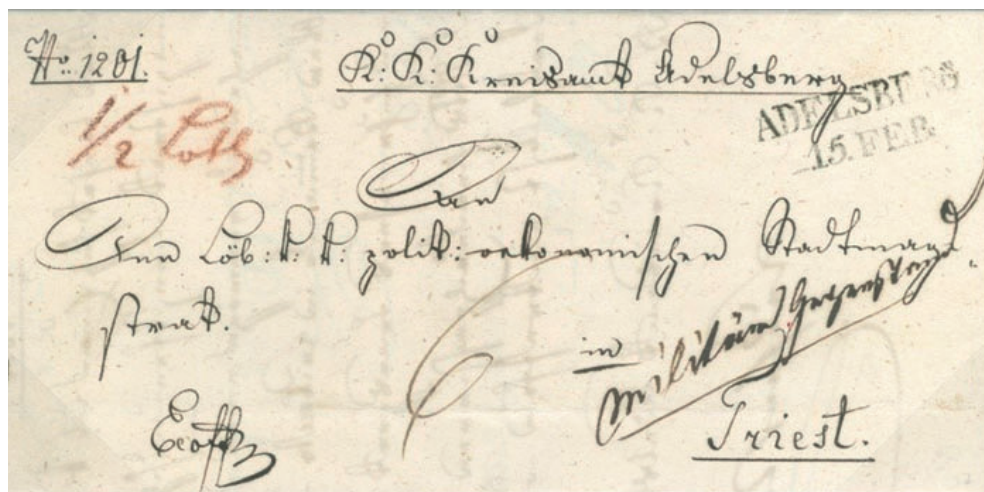 No: 1201.
K: K: Kreisamt Adelsberg
ADELSBERG
15. FEB.
1/2 Loth
An
Den Löb: k: k: polit: oekonomischen Stadtmagi-
strat.
in
Militär Gegenstand
Triest.